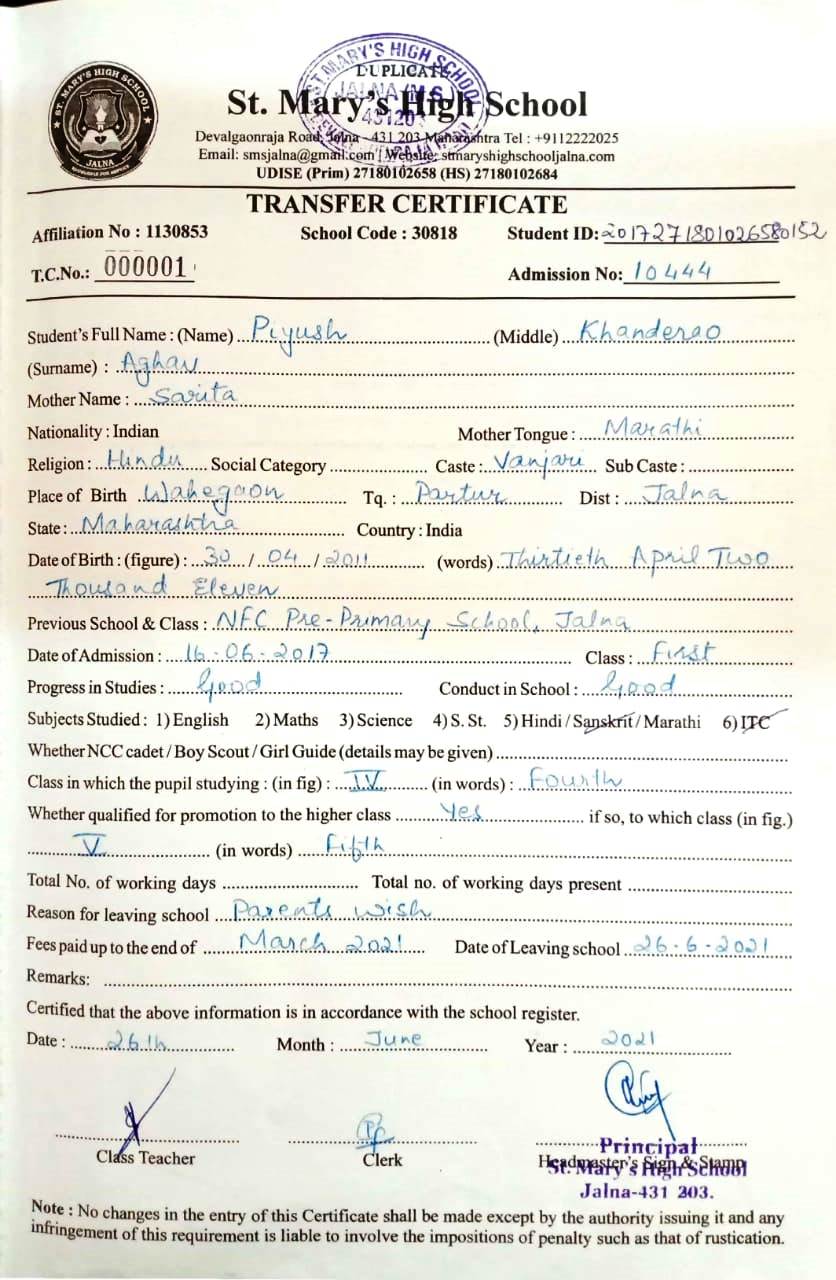 ST. MARY'S HIGH SCHOOL
JALNA
ST. MARY'S HIGH SCHOOL
JALNA (M.S.)
431203
DUPLICATE
St. Mary's High School
Devalgaonraja Road, Jalna - 431 203 Maharashtra Tel : +9112222025
Email: smsjalna@gmail.com | Website: stmaryshighschooljalna.com
UDISE (Prim) 27180102658 (HS) 27180102684
TRANSFER CERTIFICATE
Affiliation No : 1130853 School Code : 30818 Student ID: 2017271801026580152
T.C.No.: 000001 Admission No: 10444
Student's Full Name : (Name) Piyush (Middle) Khanderao
(Surname) : Aghav
Mother Name : Sarita
Nationality : Indian Mother Tongue : Marathi
Religion : Hindu Social Category Caste : Vanjari Sub Caste :
Place of Birth Wahegaon Tq. : Partur Dist : Jalna
State : Maharashtra Country : India
Date of Birth : (figure) : 30 / 04 / 2011 (words) Thirtieth April Two
Thousand Eleven
Previous School & Class : NFC Pre-Primary School, Jalna
Date of Admission : 16-06-2017 Class : First
Progress in Studies : Good Conduct in School : Good
Subjects Studied : 1) English 2) Maths 3) Science 4) S. St. 5) Hindi / Sanskrit / Marathi 6) ITC
Whether NCC cadet / Boy Scout / Girl Guide (details may be given)
Class in which the pupil studying : (in fig) : IV (in words) : Fourth
Whether qualified for promotion to the higher class Yes if so, to which class (in fig.)
V (in words) Fifth
Total No. of working days Total no. of working days present
Reason for leaving school Parents wish
Fees paid up to the end of March 2021 Date of Leaving school 26-6-2021
Remarks:
Certified that the above information is in accordance with the school register.
Date : 26th Month : June Year : 2021
Class Teacher Clerk Headmaster's Sign & Stamp
Principal
St. Mary's High School
Jalna-431 203.
Note : No changes in the entry of this Certificate shall be made except by the authority issuing it and any
infringement of this requirement is liable to involve the impositions of penalty such as that of rustication.